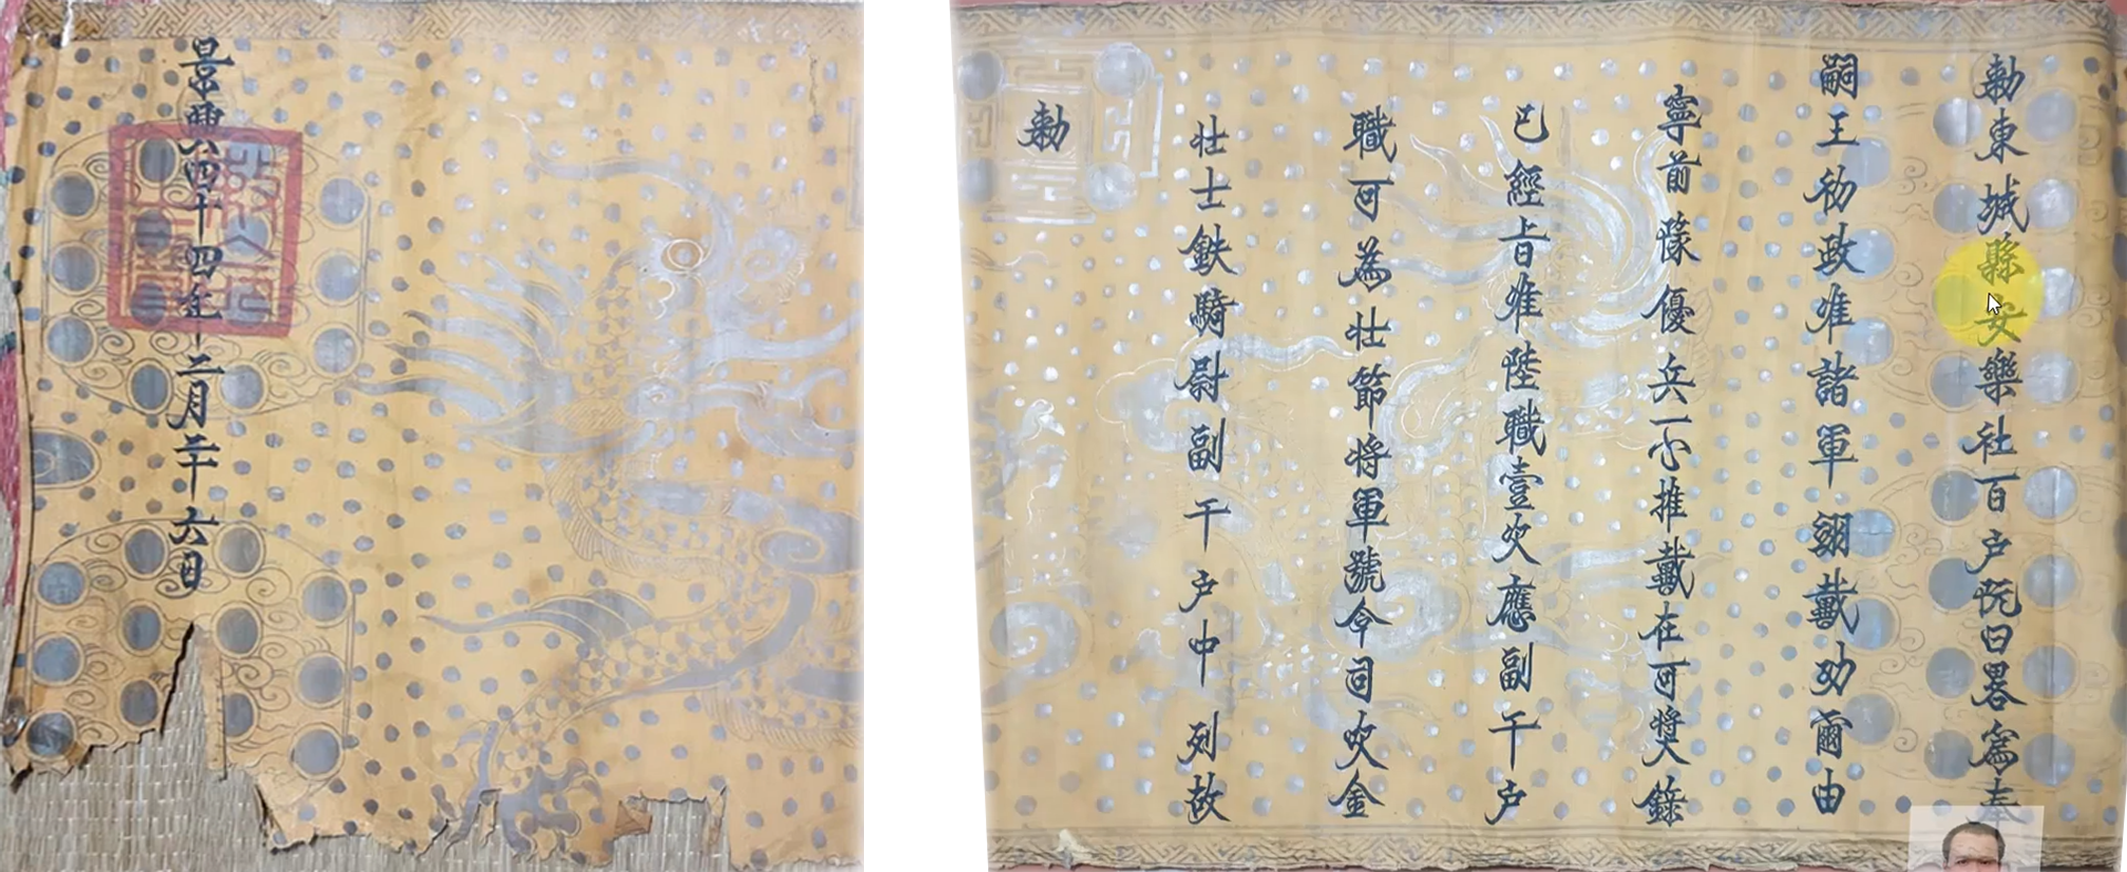 勅東城縣安樂社百户阮曰畧爲奉
嗣王初政准諸軍翊戴功爾由
寧前隊優兵一心推戴在可獎錄
已經旨准陞職壹次應副千户
職可為壯節将軍號令司次金
壯士鉄騎尉副千户中列故
勅
景興四十四年二月二十六日